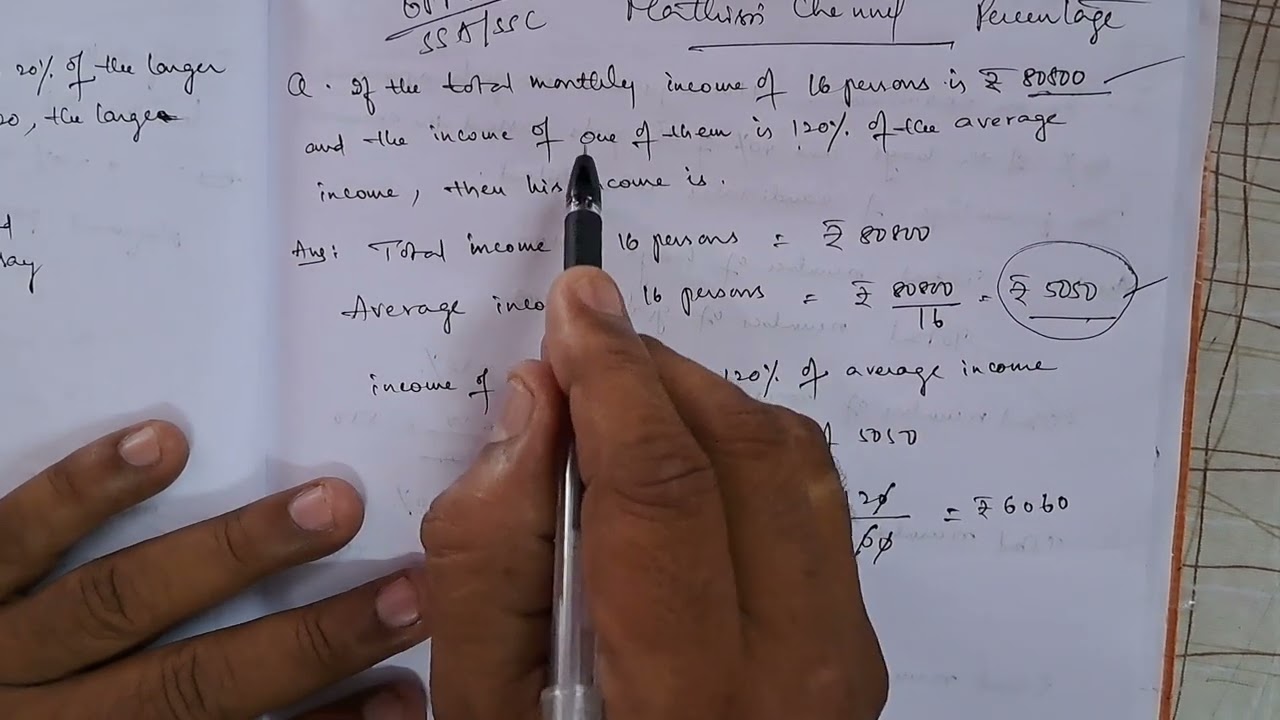 SSA/SSC
Channel Percentage
20% of the larger
20, the large
Q. If the total monthly income of 16 persons is ₹ 80800
and the income of one of them is 120% of the average
income, then his income is.
Ans: Total income 16 persons = ₹ 80800
Average inco 16 persons = ₹ 80800/16 = ₹ 5050
income of 120% of average income
5050
= ₹ 6060